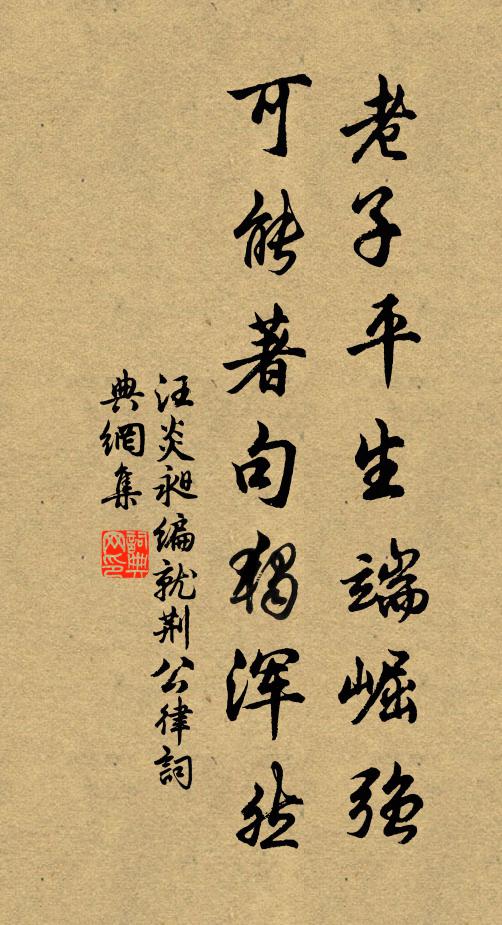 老子平生端崛强
可能著句独浑然
汪炎昶編就荆公律詞
典網集
詞典网印